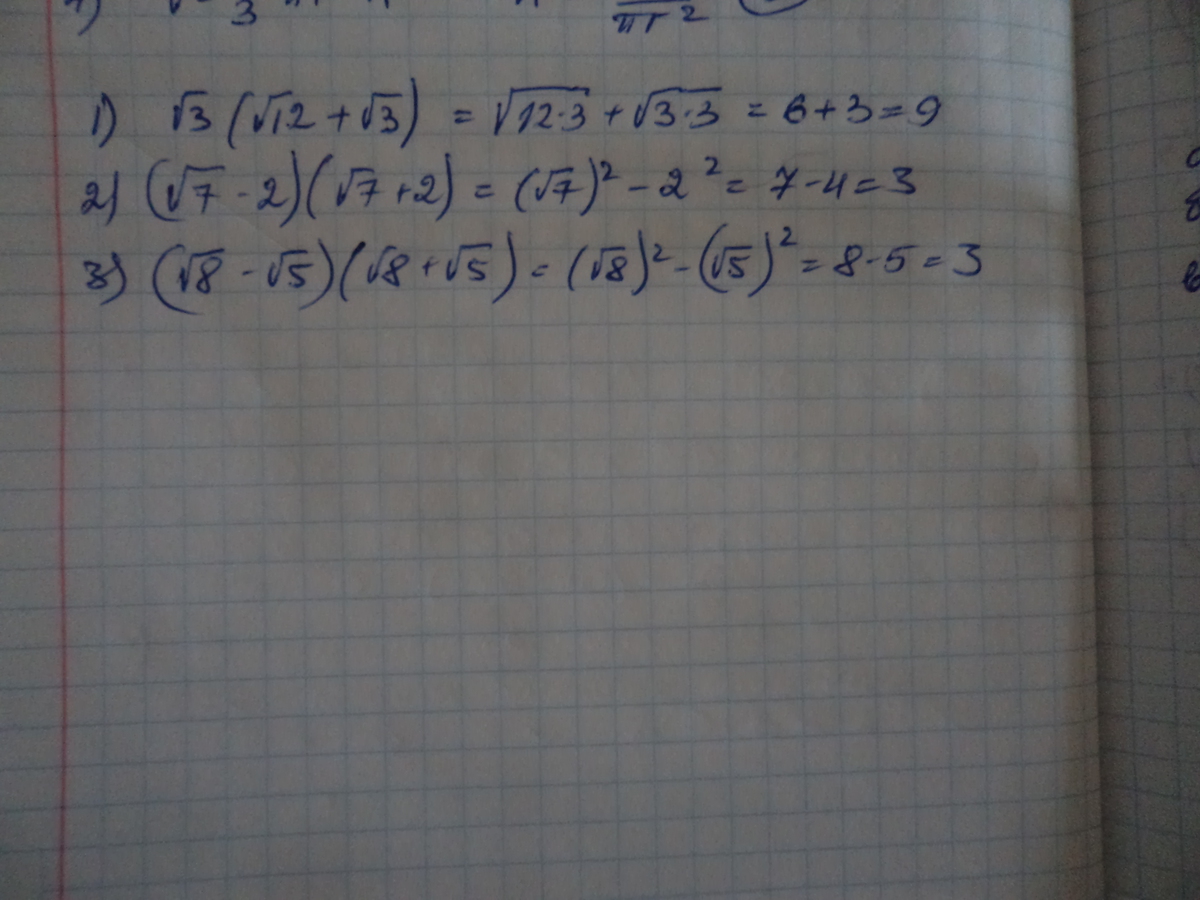 πr²
1) √3 (√12 + √3) = √12·3 + √3·3 = 6+3=9
2) (√7 - 2)(√7 + 2) = (√7)² - 2² = 7-4=3
3) (√8 - √5)(√8 + √5) = (√8)² - (√5)² = 8-5=3